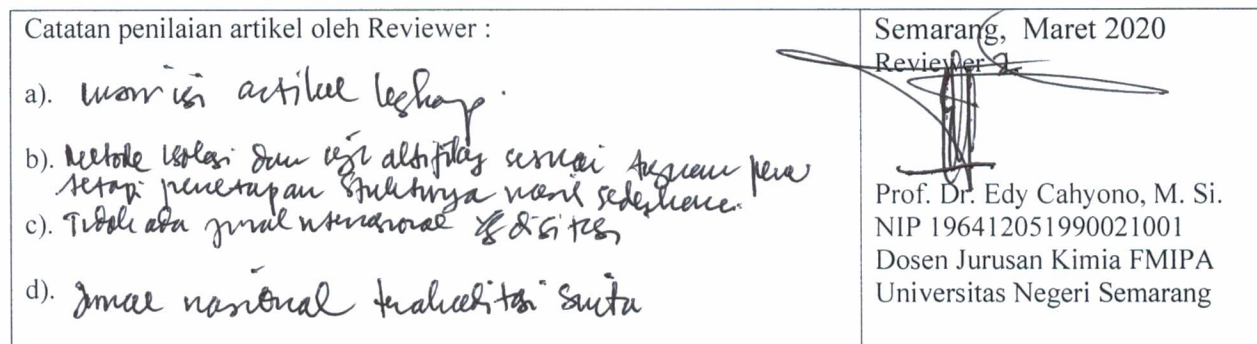 Catatan penilaian artikel oleh Reviewer :
a). isi artikel lengkap.
b). Metode isolasi dan uji aktifitas sesuai tujuan
tetapi penetapan strukturnya masih sederhana.
c). Tidak ada jurnal internasional yg disitasi
d). Jurnal nasional terakreditasi Sinta
Semarang, Maret 2020
Reviewer 2
Prof. Dr. Edy Cahyono, M. Si.
NIP 196412051990021001
Dosen Jurusan Kimia FMIPA
Universitas Negeri Semarang